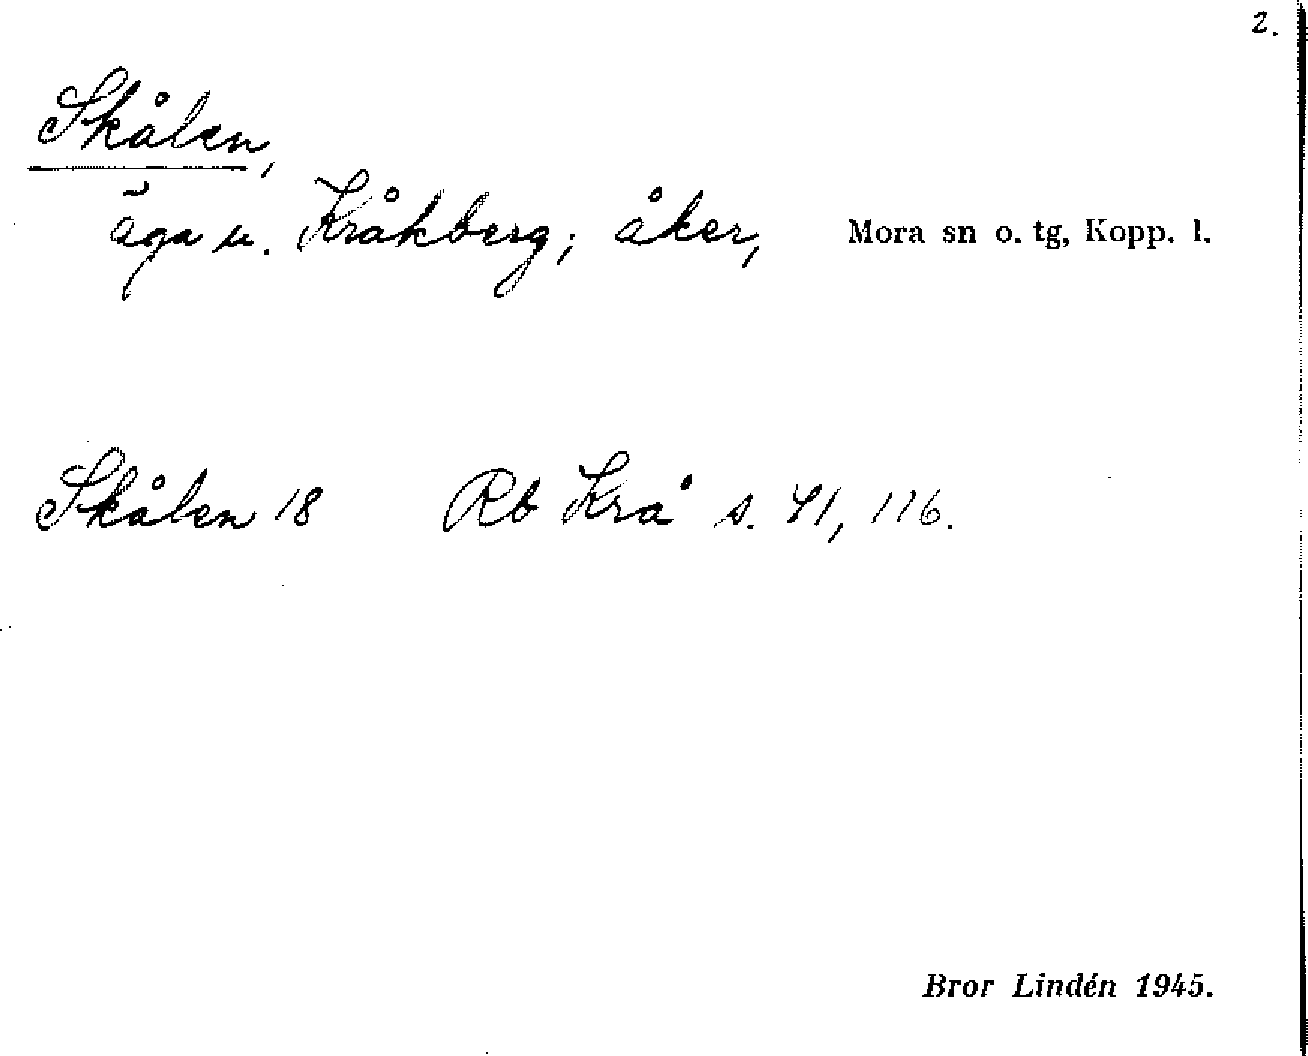 2.
Skålen,
äga u. Kråkberg; åker, Mora sn o. tg, Kopp. l.
Skålen 18 Rb Krå s. 41, 116.
Bror Lindén 1945.